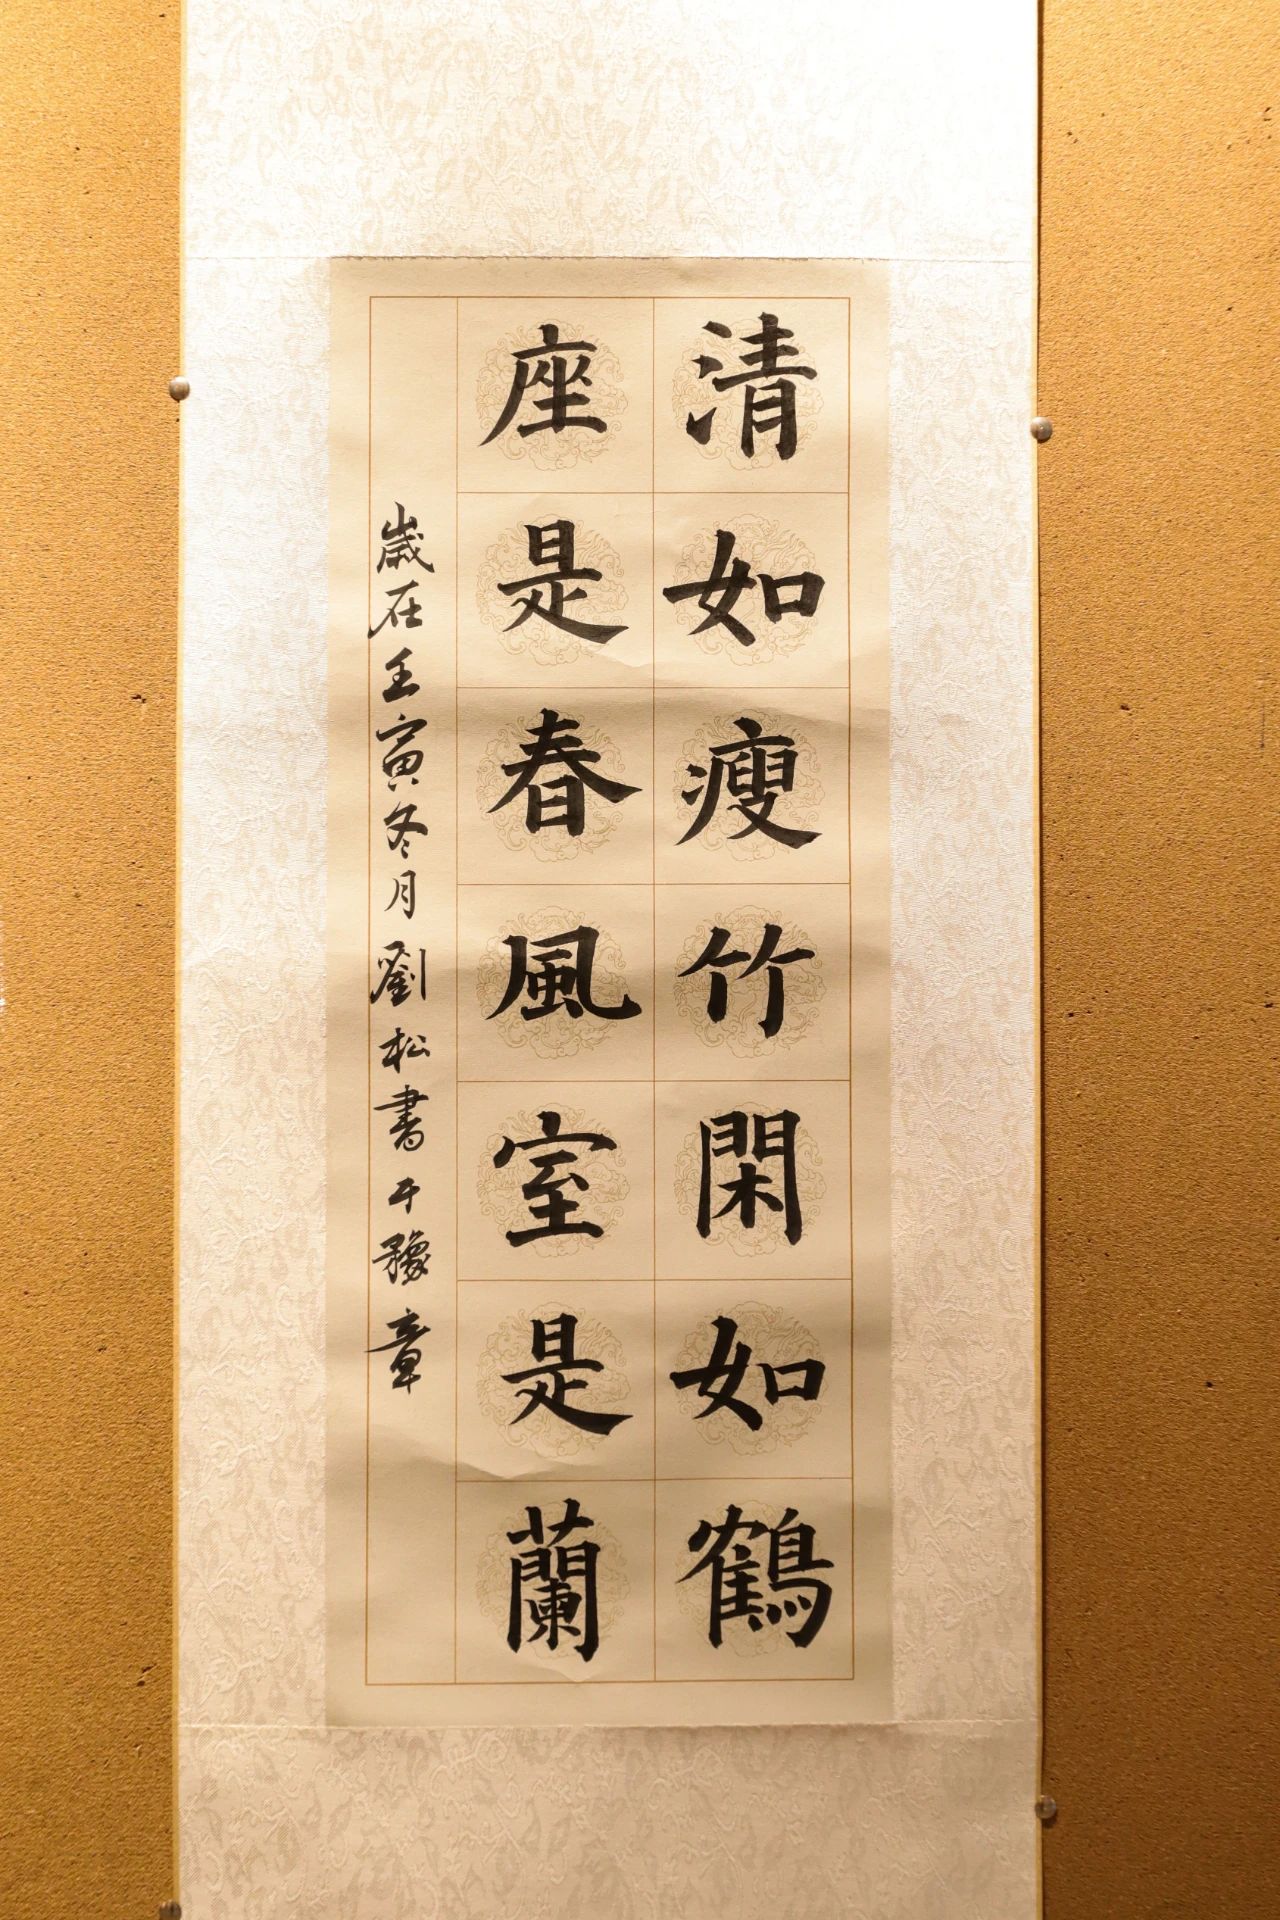 清如瘦竹閑如鶴
座是春風室是蘭
歲在壬寅冬月劉松書于豫章